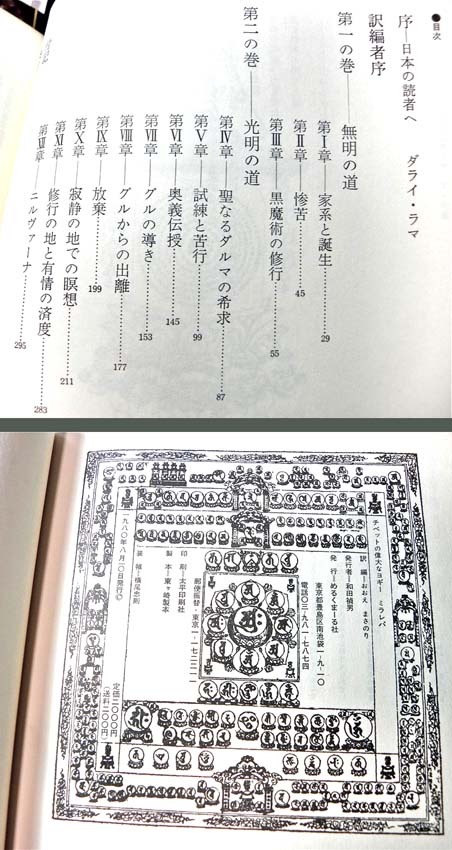 ●目次
序―日本の読者へ　ダライ・ラマ
訳編者序
第一の巻――無明の道
第Ⅰ章――家系と誕生……29
第Ⅱ章――惨苦……45
第Ⅲ章――黒魔術の修行……55
第二の巻――光明の道
第Ⅳ章――聖なるダルマの希求……87
第Ⅴ章――試練と苦行……99
第Ⅵ章――奥義伝授……145
第Ⅶ章――グルの導き……153
第Ⅷ章――グルからの出離……177
第Ⅸ章――放棄……199
第Ⅹ章――寂静の地での瞑想……211
第Ⅺ章――修行の地と有情の済度……283
第Ⅻ章――ニルヴァーナ……295
チベットの偉大なヨギー　ミラレパ
訳　編―おおえ　まさのり
発行者―和田禎男
発　行―めるくまーる社
東京都豊島区南池袋一-九-一〇
電話〇三-九八一-七八七四
郵便振替―東京一-一七二二一一
印　刷―太平印刷社
製　本―東ヶ崎製本
装　幀―横尾忠則
一九八〇年八月二〇日発行©
定価二〇〇〇円
(送料二〇〇円)